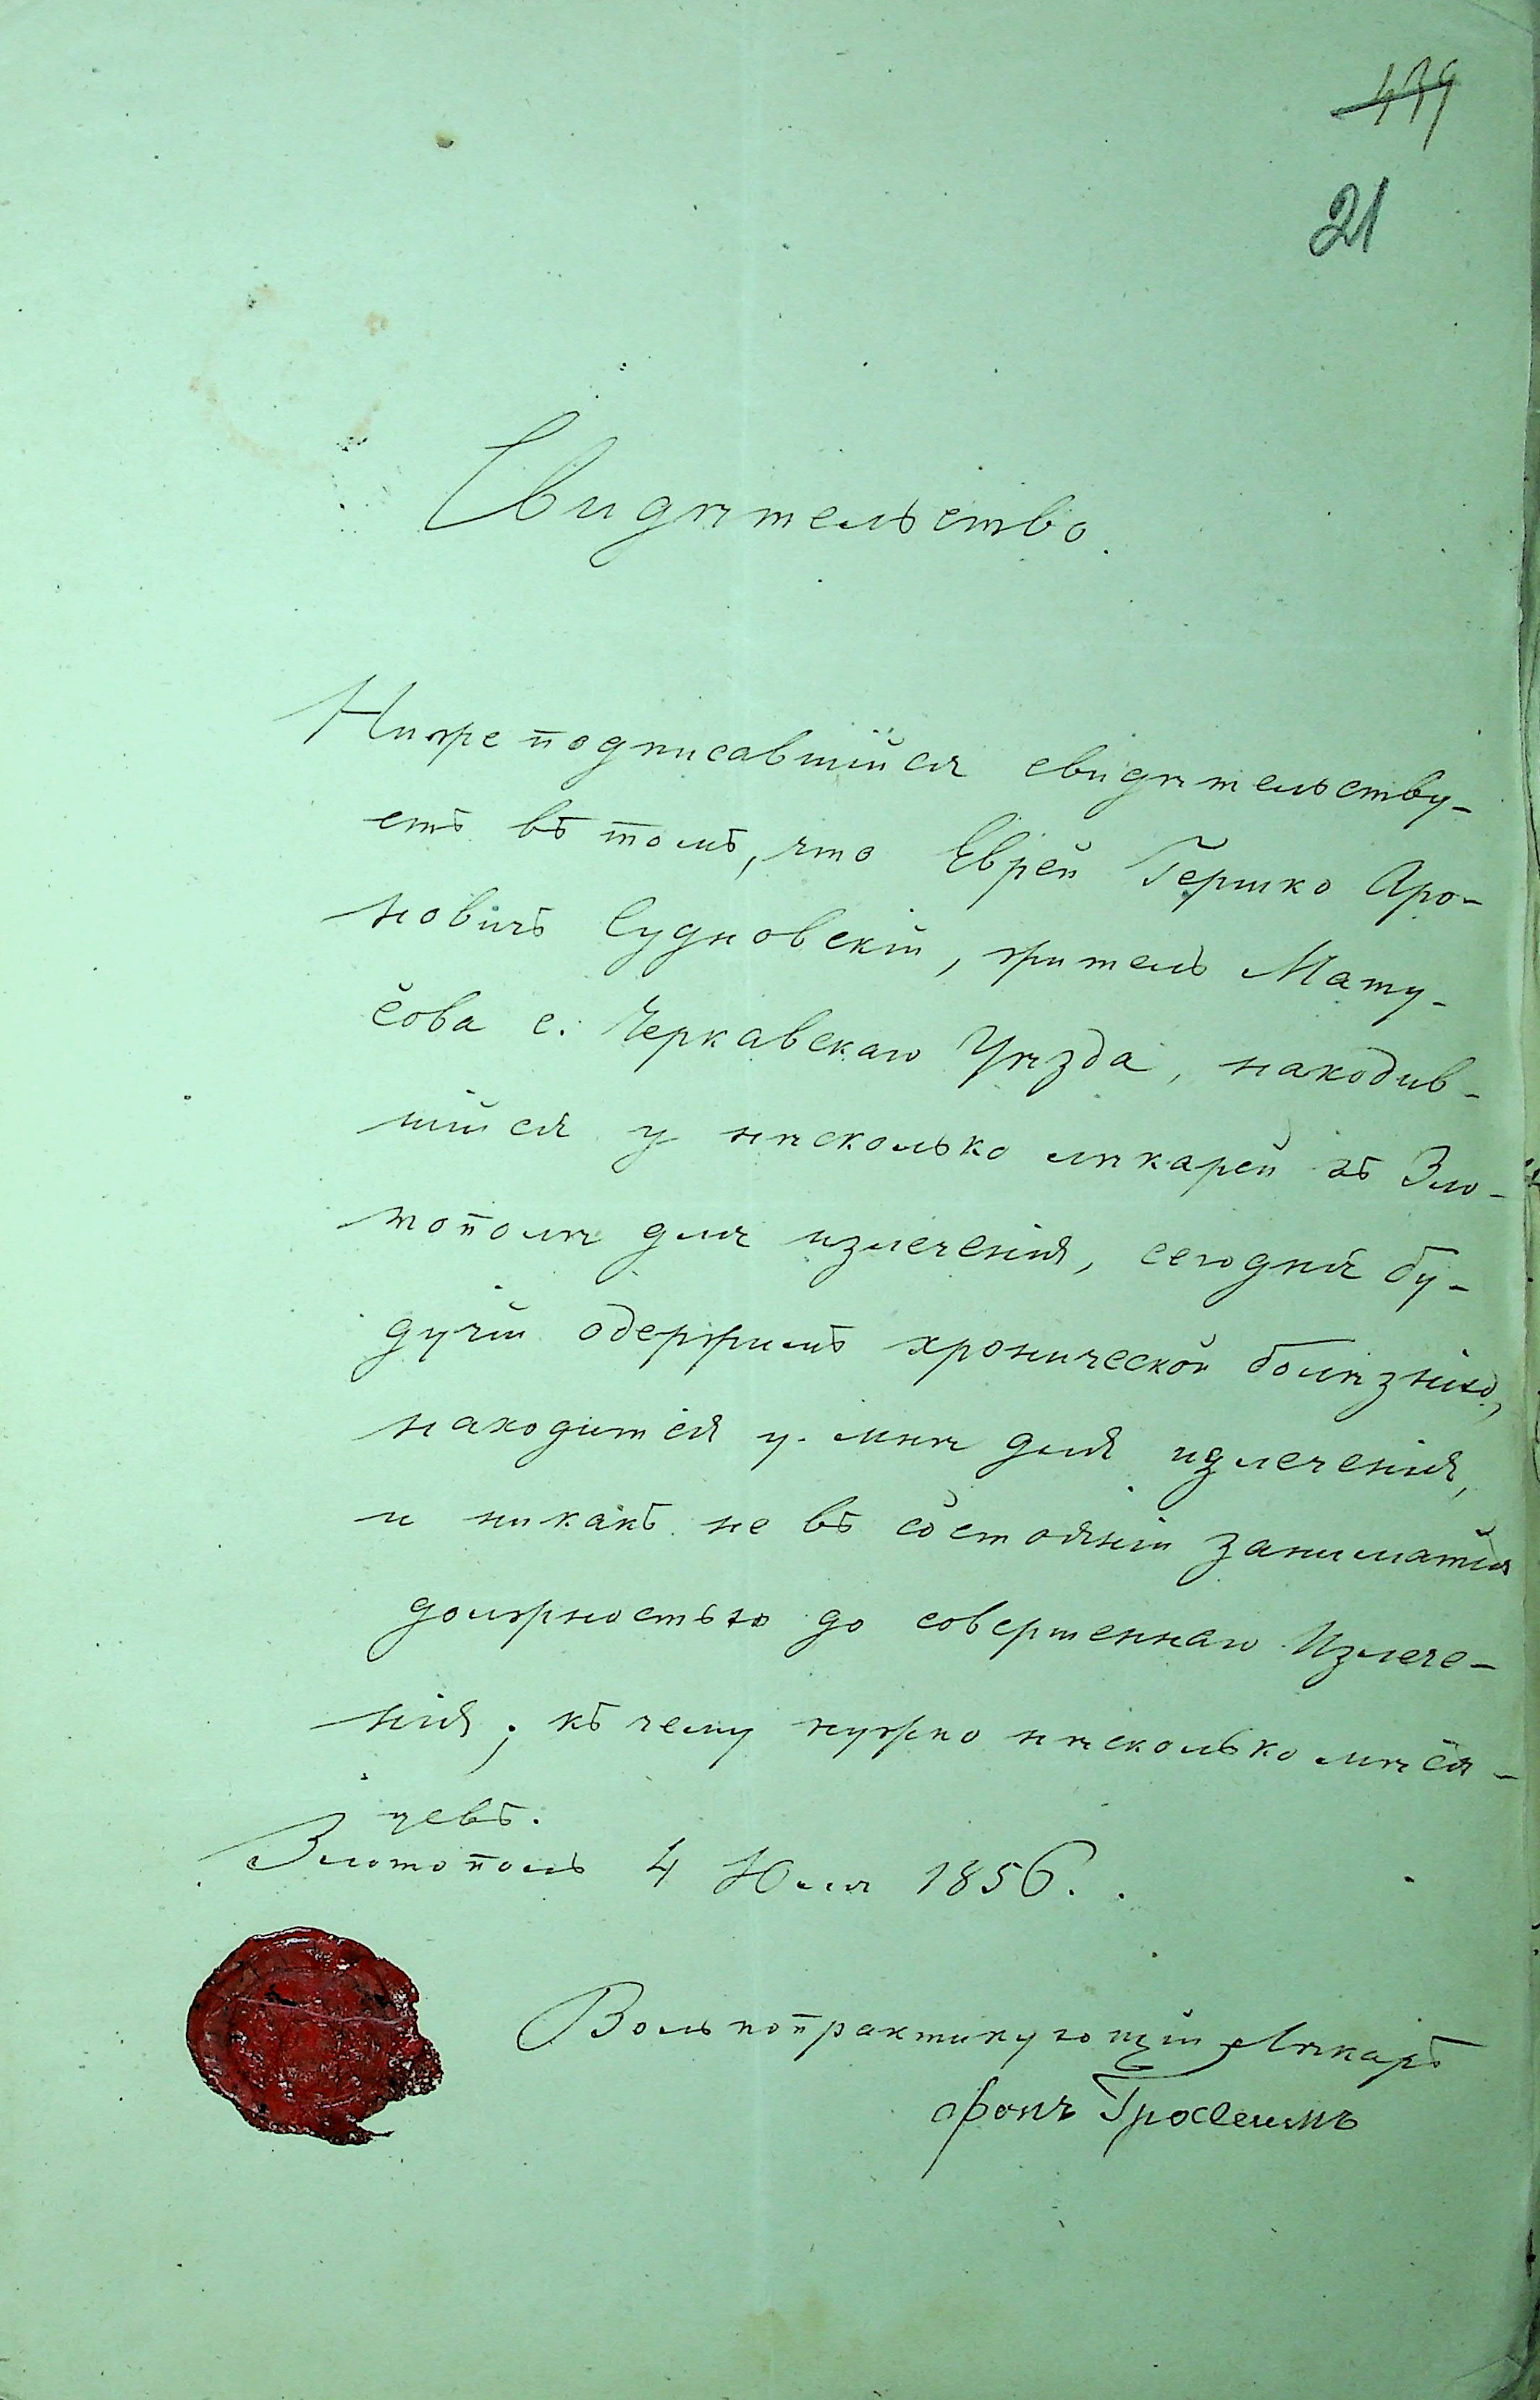 439
21
Свидѣтельство.
Нижеподписавшійся свидѣтельству-
етъ въ томъ, что Еврей Гершко Аро-
новичъ Судновскій, житель Мату-
сова с. Черкавскаго Уѣзда, находив-
шійся у нѣсколько лѣкарей въ Зло-
тополѣ для излеченія, сегодня бу-
дучій одержимъ хронической болѣзнію,
находится у мнѣ для излеченія,
и никакъ не въ состояніи заниматся
должностью до совершеннаго Излече-
нія; къ чему нужно нѣсколько мѣся-
цевъ.
Златополь 4 Юля 1856.
Вольнопрактикующій Лѣкаръ
фонъ